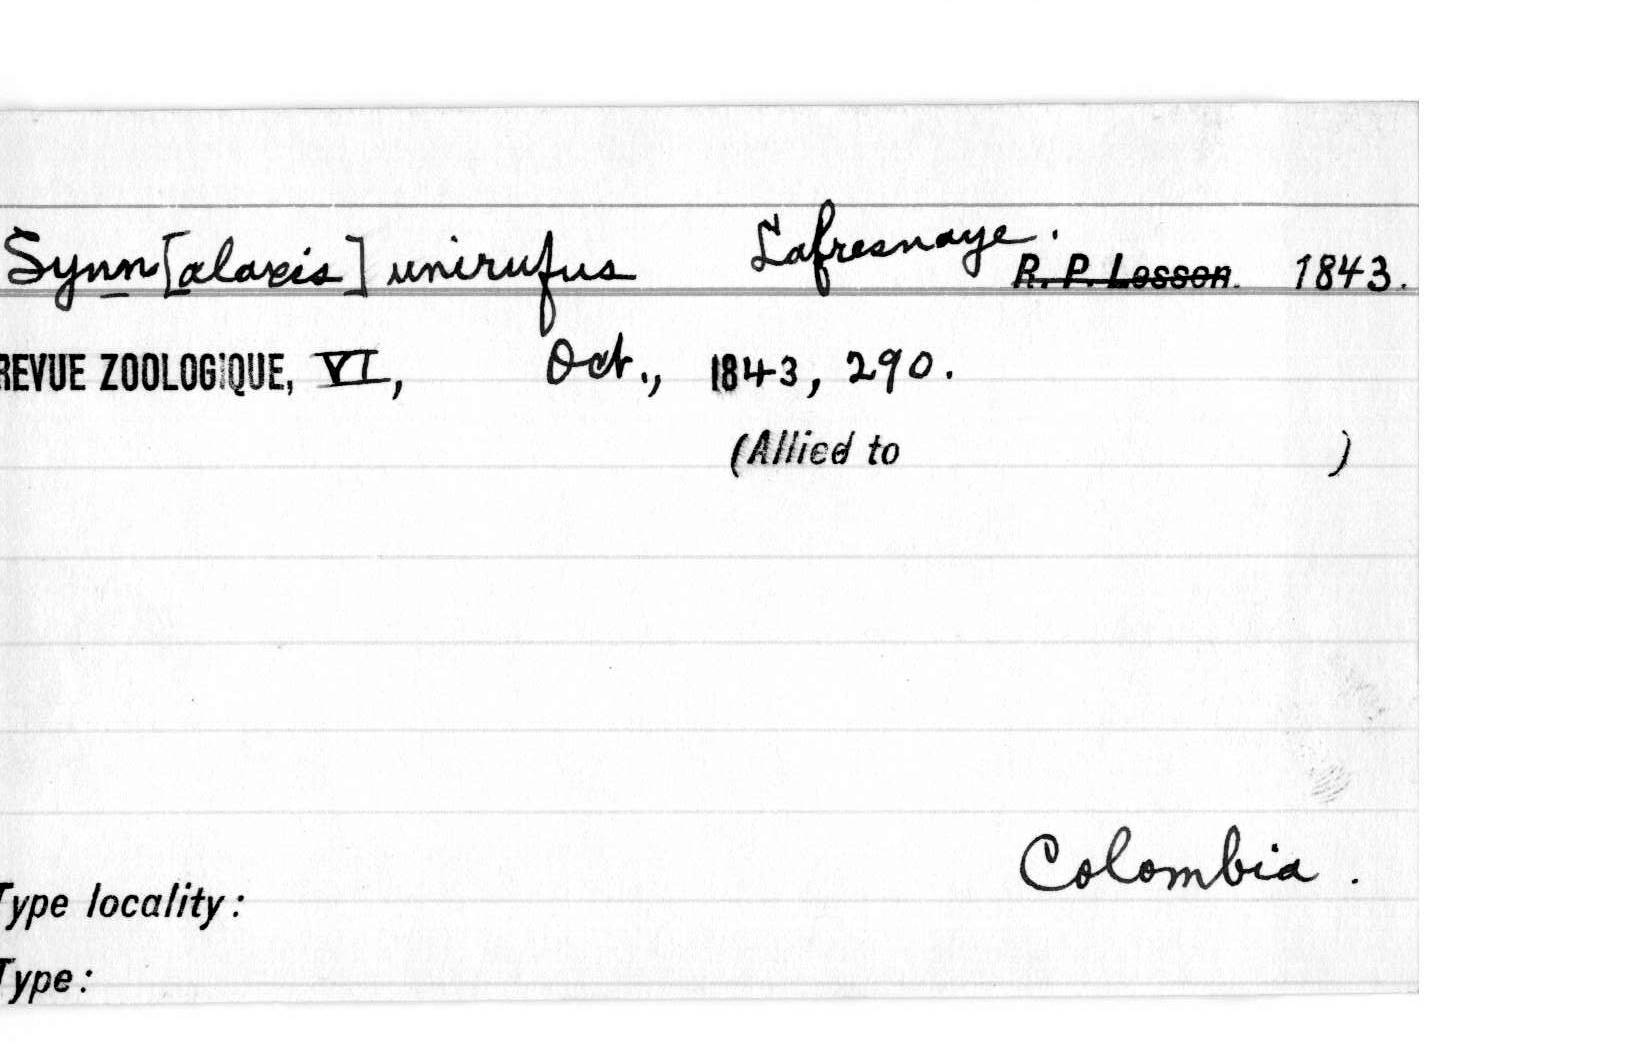 Synn[alaxis] unirufus Lafresnaye. R. P. Lesson. 1843.
REVUE ZOOLOGIQUE, VI, Oct., 1843, 290.
(Allied to )
Colombia.
Type locality:
Type: